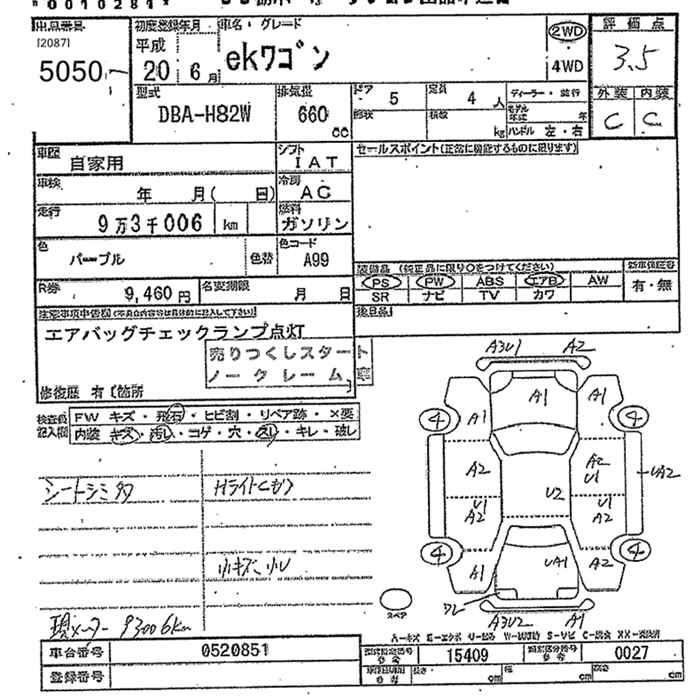 出品番号 初度登録年月 車名・グレード 評価点
[2087] 平成 ekワゴン 2WD 3.5
5050 20 6月 4WD
型式 排気量 ドア 5 定員 4人 ディーラー・並行 外装 内装
DBA-H82W 660 cc 形状 積数 kg モデル年式 年 ハンドル 左・右 C C
車歴 自家用 シフト IAT セールスポイント(正常に機能するものに限ります)
車検 年 月( 日) 冷房 AC
走行 9万3千006 km 燃料 ガソリン
色 パープル 色替 色コード A99
装備品 (純正品に限り○をつけてください) 新車保証書
R券 9,460円 名変期限 月 日 PS PW ABS エアB AW 有・無
SR ナビ TV カワ
注意事項申告欄 後日品
エアバッグチェックランプ点灯
売りつくしスタート
ノークレーム
修復歴 有〔箇所
検査員記入欄 FW キズ・飛石・ヒビ割・リペア跡・×要
内装 キズ・汚レ・コゲ・穴・スレ・キレ・破レ
A3U1 A2
A1 A1 A1
4 4
A2 A2 U1 UA2
U2
U1 A2 U1 A2
4 4
A1 UA1 A2
シートシミ多 Hライトヒガソ
小キズ、小U
スペア A3U2 A1
現メーター 93006km
車台番号 0520851 15409 0027
登録番号 長さ cm 幅 cm 高さ cm